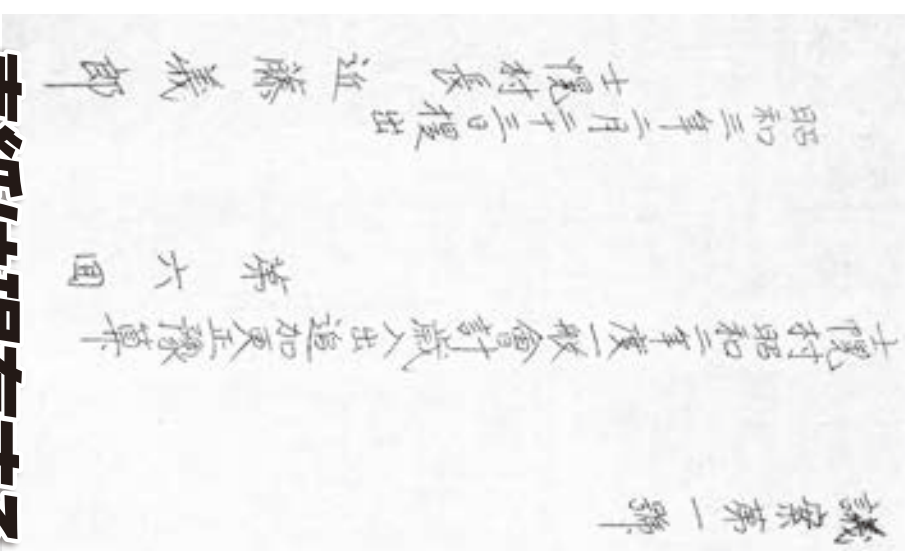 議案第一號
士幌村昭和二年度一般會計歳入出追加更正豫算
第六回
昭和三年二月二十三日提出
士幌村長 近藤義郎